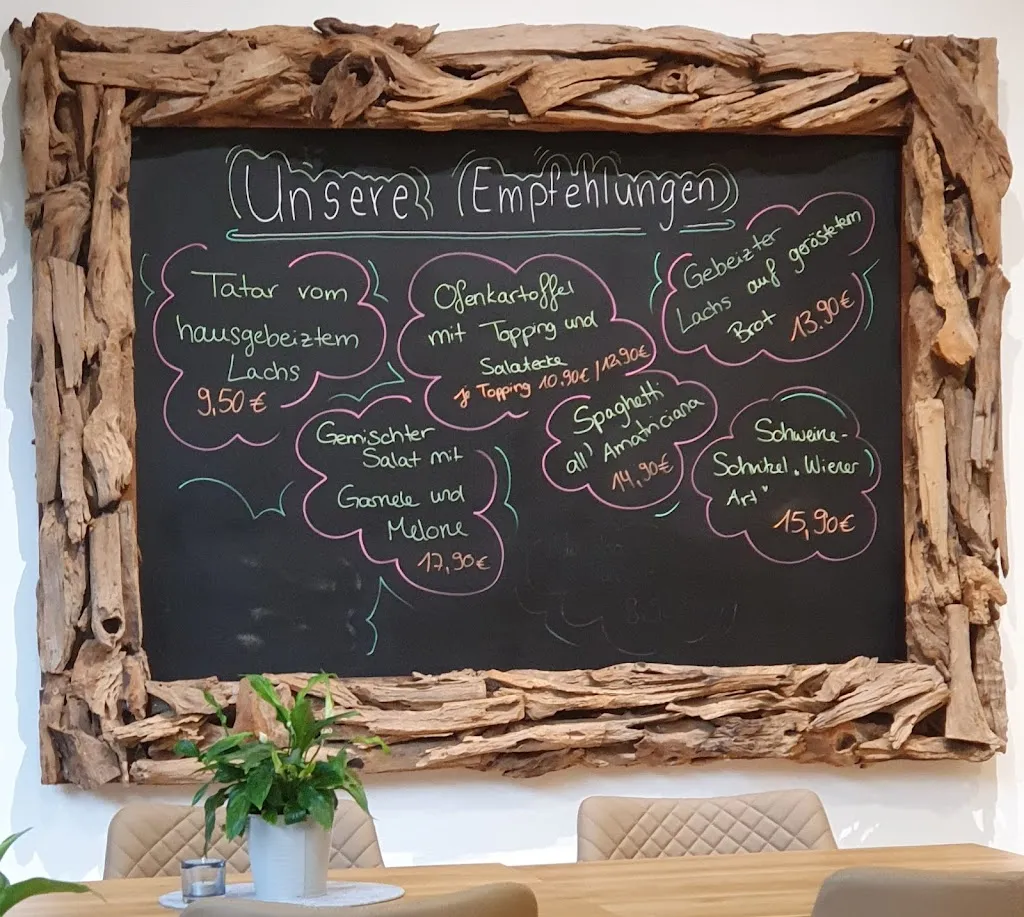 Unsere Empfehlungen
Tatar vom
hausgebeiztem
Lachs
9,50 €
Ofenkartoffel
mit Topping und
Salatecke
je Topping 10.90€ / 12.90€
Gebeizter
Lachs auf geröstetem
Brot 13.90€
Gemischter
Salat mit
Garnele und
Melone
17,90€
Spaghetti
all' Amatriciana
14,90€
Schweine-
Schnitzel „Wiener
Art"
15,90€